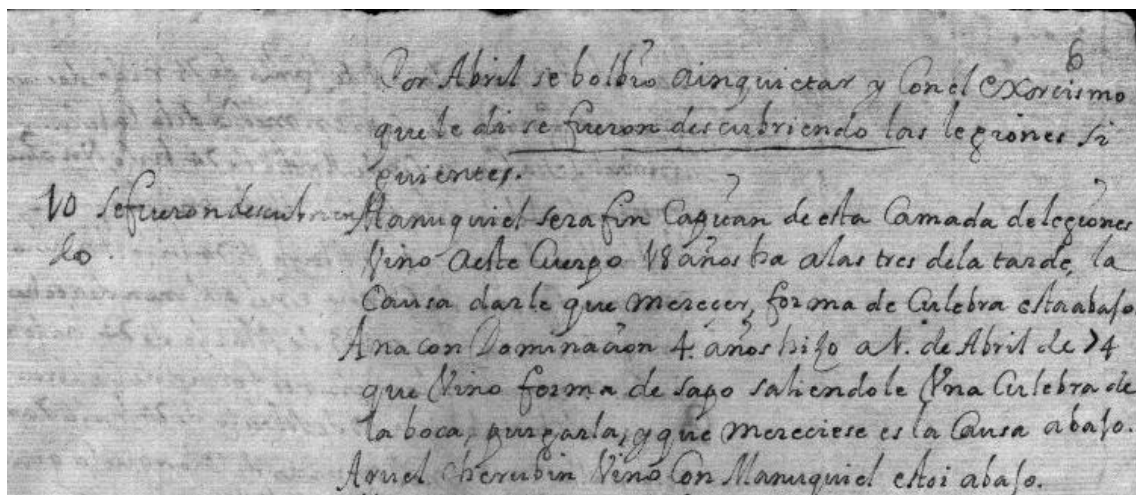 6
Por Abril se bolbio ainquietar y Con el exorcismo
que le di se fueron descubriendo las legiones si
guientes.
10 sefueron descubrien
do.
Manuquiel serafin Capitan de esta Camada delegiones
Vino aeste Cuerpo 18 años ha alas tres dela tarde, la
Causa darle que merecer, forma de Culebra estaabajo
Anacon Dominacion 4. años hizo a 1. de Abril de 74
que Vino forma de sapo saliendole Una Culebra de
la boca, purgarla, y que mereciese es la Causa abajo.
Aruel cherubin Vino Con Manuquiel estoi abajo.